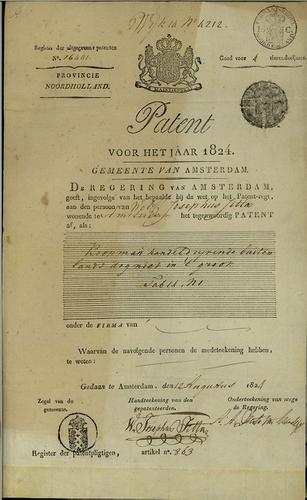 Wijk 12 N. 4212.
Register der uitgegevene patenten
N°. 16401.
Goed voor 4 vierendeeljaars
PROVINCIE
NOORDHOLLAND.
Patent
VOOR HET JAAR 1824.
GEMEENTE VAN AMSTERDAM.
DE REGERING VAN AMSTERDAM,
geeft, ingevolge van het bepaalde bij de wet op het Patent-regt,
aan den persoon van Josephus
wonende te Amsterdam het tegenwoordig PATENT
af, als:
Koopman handel drijvende buiten
lands dog niet in 't groot
Tabel N1
onder de FIRMA van
Waarvan de navolgende personen de medeteekening hebben,
te weten:
Gedaan te Amsterdam, den 12 Augustus 1824
Zegel van de
gemeente.
Handteekening van den
gepatenteerden.
Onderteekening van wege
de Regering.
Josephus
Register der patentpligtigen, artikel n°. 863